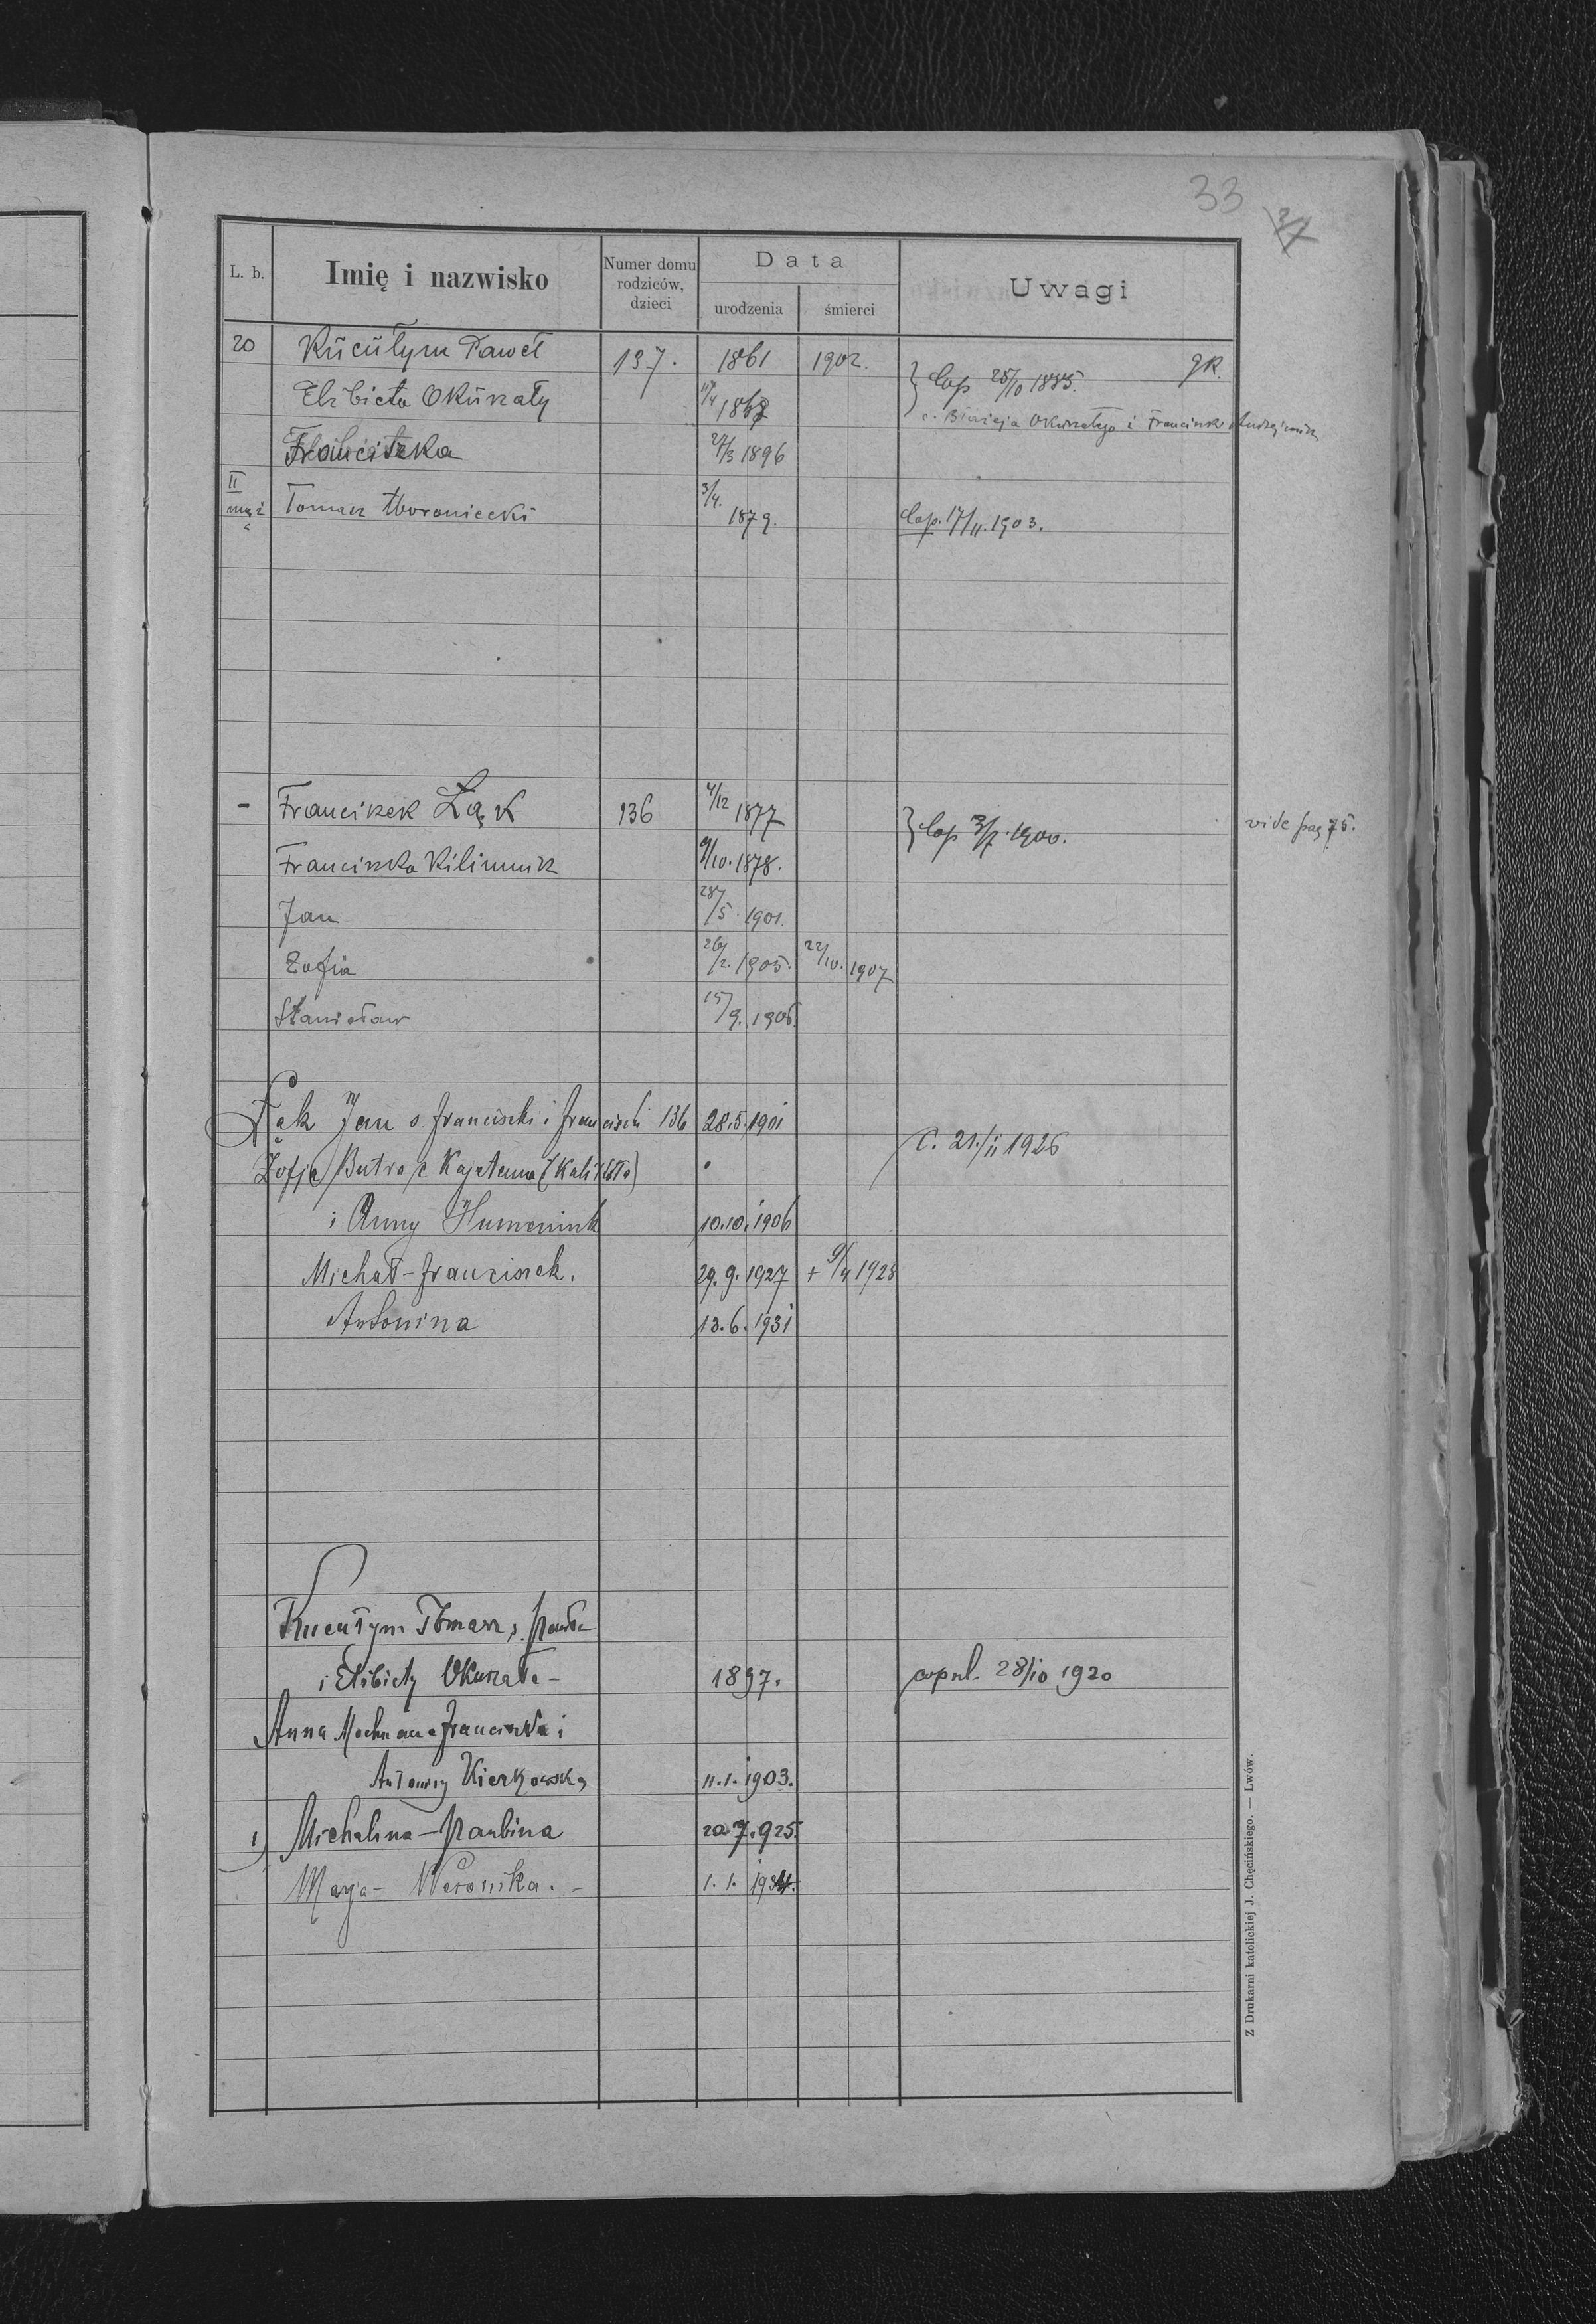 33
L. b. Imię i nazwisko Numer domu rodziców, dzieci Data urodzenia śmierci Uwagi
20 Kucułym Paweł 137. 1861 1902. Cop 25/10 1885. gk.
Elżbieta Okurzały 11/4 186 c. Błażeja Okurzałego i Franciszki
Franciszka 27/3 1896
II mąż Tomasz Woroniecki 3/4. 1879. Cop. 17/11. 1903.
- Franciszek Łąk 136 4/12 1877 Cop 3/7. 1900. vide pag 75.
Franciszka Kilimnik 9/10. 1878.
Jan 28/5. 1901.
Zofia 26/2. 1905. 22/10. 1907
Stanisław 15/9. 1906.
Łąk Jan s. Franciszka i Franciszki 136 28.5.1901
Zofja Butra c Kajetana (Kaliksta) C. 21./11 1926
i Anny Humeniuk 10.10.1906
Michał-Franciszek. 29.9.1927 + 9/4 1928
Antonina 13.6.1931
Kucułym Tomasz s. Pawła
i Elżbiety Okurzała - 1897. copul. 28/10 1920
Anna c Franciszka i
Antoniny 11.1.1903.
1) Michalina - Paulina 20.7.925.
Marja - Weronika. - 1.1.1934.
Z Drukarni katolickiej J. Chęcińskiego. — Lwów.